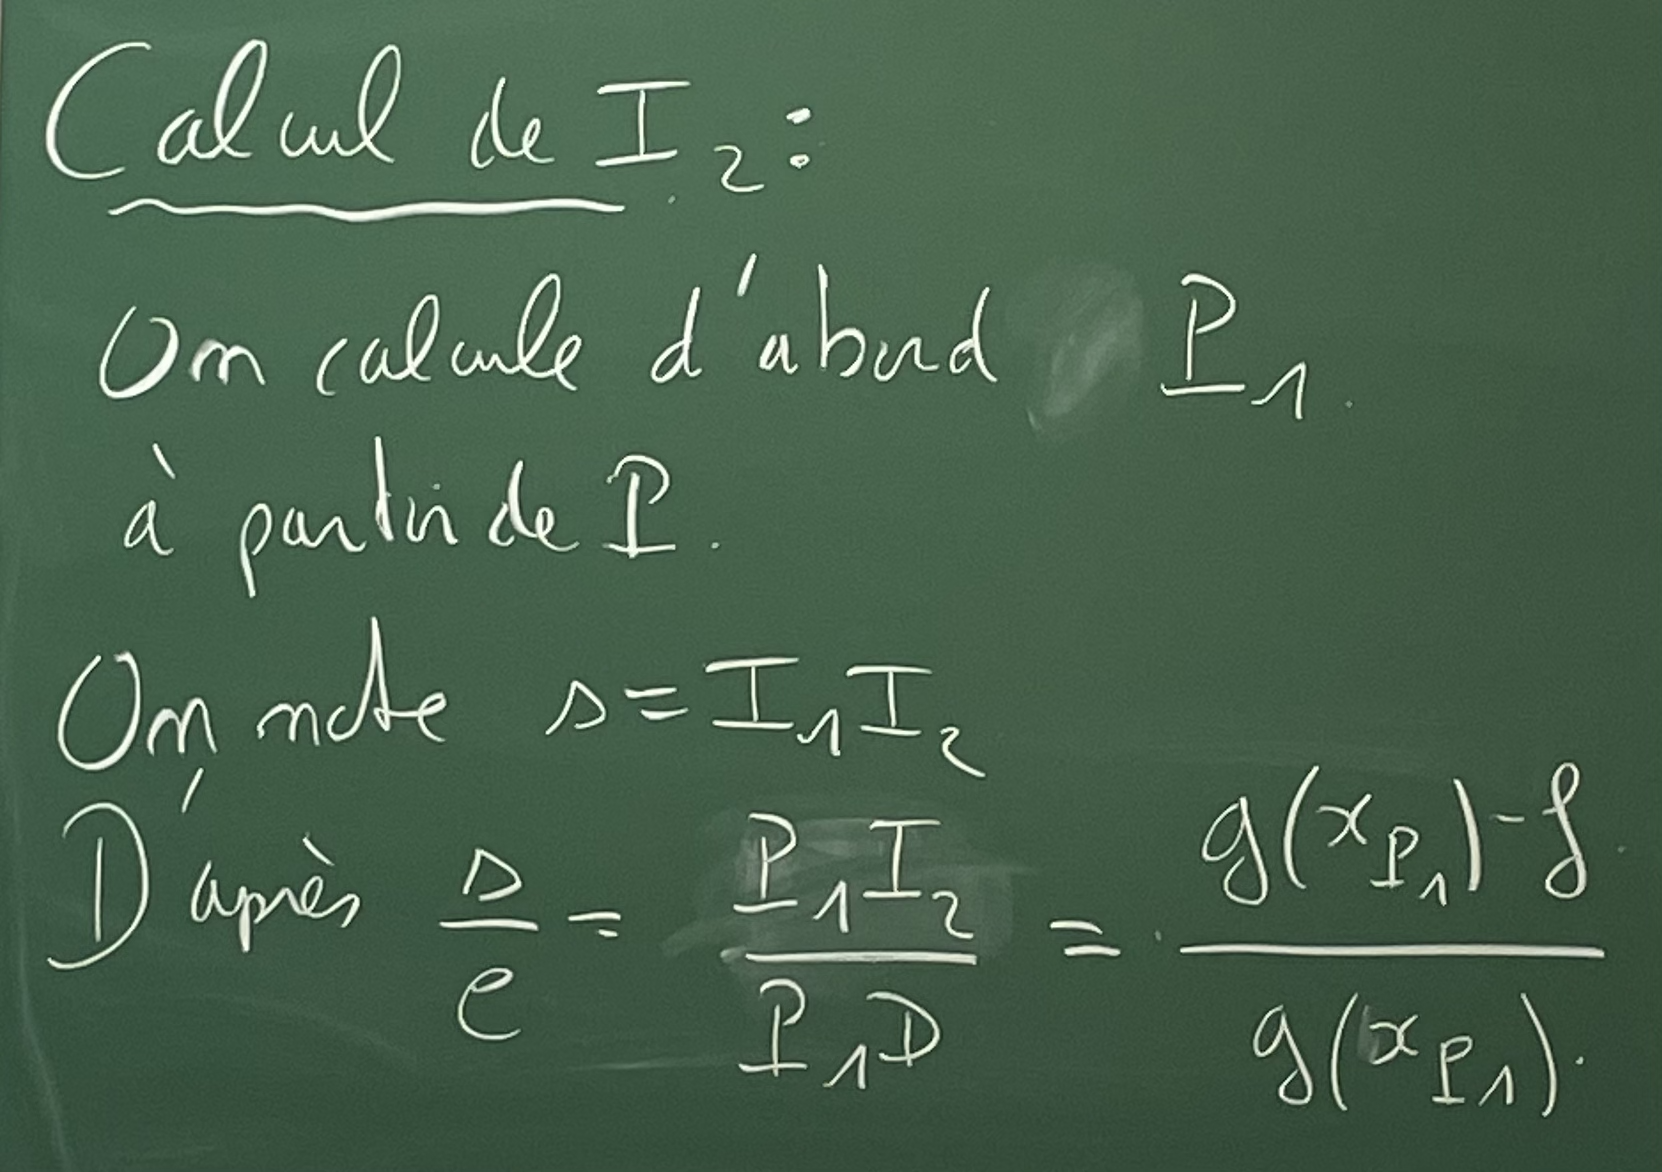 Calcul de I₂:
On calcule d'abord P₁
à partir de P.
On note s = I₁I₂
D'après s/e = P₁I₂/P₁D = (g(x_P₁) - f)/g(x_P₁).